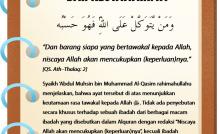 وَمَنْ يَتَوَكَّلْ عَلَى اللَّهِ فَهُوَ حَسْبُهُ
"Dan barang siapa yang bertawakal kepada Allah,
niscaya Allah akan mencukupkan (keperluan)nya."
(QS. Ath-Thalaq: 2)
Syaikh Abdul Muhsin bin Muhammad Al-Qasim rahimahullahu
menjelaskan, bahwa ayat tersebut di atas menunjukkan
keutamaan rasa tawakal kepada Allah ﷻ. Tidak ada penyebutan
secara khusus terhadap sebuah ibadah dari berbagai macam
ibadah yang disebutkan dalam Alquran dengan redaksi "Niscaya
Allah akan mencukupkan (keperluan)nya", kecuali ibadah